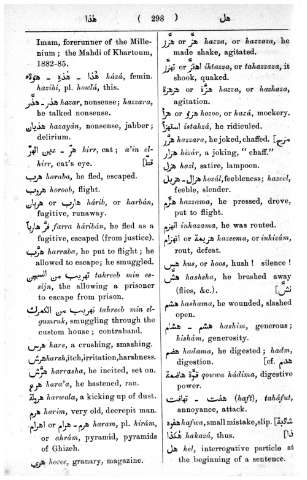 هٰذا ( 298 ) هل
Imam, forerunner of the Mille-
nium; the Mahdi of Khartoum,
1882-85.
هٰذا - هٰذه - هؤلاء házá, femin.
hazihi, pl. howlá, this.
هذر - هذّر hazar, nonsense; hazzara,
he talked nonsense.
هذيان hazayán, nonsense, jabber;
delirium.
هرّ - عين الهرّ hirr, cat; a'in el-
hirr, cat's eye.
هرب haraba, he fled, escaped.
هروب horoob, flight.
هارب or هربان hárib, or harbán,
fugitive, runaway.
فرّ هاربًا farra háriban, he fled as a
fugitive, escaped (from justice).
هرّب harraba, he put to flight; he
allowed to escape; he smuggled.
تهريب من السجن tahreeb min es-
sijn, the allowing a prisoner
to escape from prison.
تهريب من الكمرك tahreeb min el-
gumruk, smuggling through the
custom house; contraband.
هرس hars, a crushing, smashing.
هرش harsh, itch, irritation, harshness.
هرّش harrasha, he incited, set on.
هرع hara'a, he hastened, ran.
هرولة harwala, a kicking up of dust.
هرم harim, very old, decrepit man.
هرم - اهرام or هرام haram, pl. hirám,
or ahrám, pyramid, pyramids
of Ghizeh.
هري heree, granary, magazine.
هزّ or هزّز hazza, or hazzaza, he
made shake, agitated.
اهتزّ or تهزّز ihtazza, or tahazzaza, it
shook, quaked.
هزّة or هزهزة hazza, or hazhaza,
agitation.
هزو or هزء hozoo, or hozá, mockery.
استهزأ istahzá, he ridiculed.
هزّر hazzara, he joked, chaffed.
هزار hizár, a joking, "chaff."
هزل hazl, satire, lampoon.
هزال - هزيل hozál, feebleness; hazeel,
feeble, slender.
هزم hazzema, he pressed, drove,
put to flight.
انهزم inhazama, he was routed.
هزيمة or انهزام hazeema, or inhizám,
rout, defeat.
هس hus, or hoos, hush! silence!
هشّ hashsha, he brushed away
(flies, &c.).
هشم hashama, he wounded, slashed
open.
هشم - هشام hashim, generous;
hishám, generosity.
هضم hadama, he digested; hadm,
digestion.
قوّة هاضمة qowwa hádima, digestive
power.
هفت - تهافت (haft), taháfut,
annoyance, attack.
هفوة hafwa, small mistake, slip.
هكذا hakazá, thus.
هل hel, interrogative particle at
the beginning of a sentence.